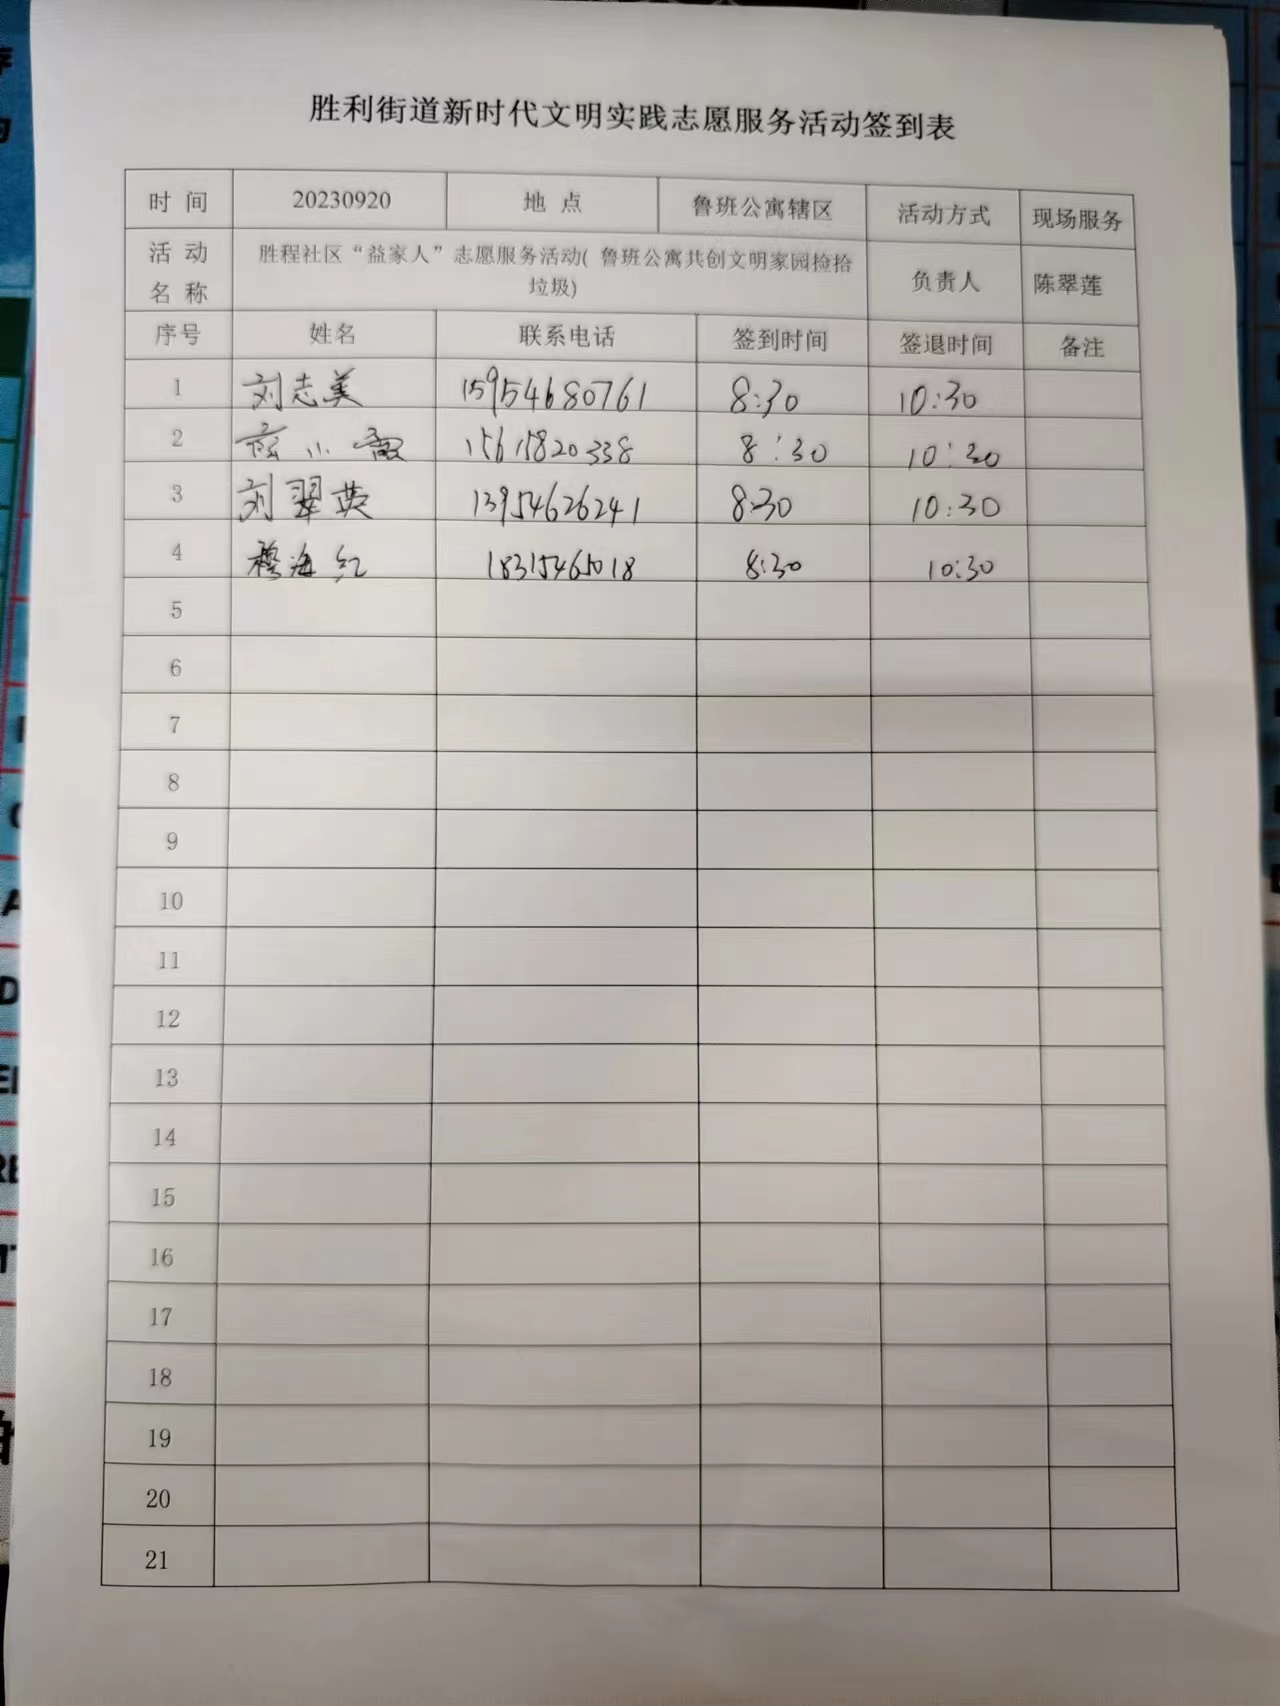 胜利街道新时代文明实践志愿服务活动签到表
时 间 20230920 地 点 鲁班公寓辖区 活动方式 现场服务
活 动 名 称 胜程社区“益家人”志愿服务活动( 鲁班公寓共创文明家园捡拾垃圾) 负责人 陈翠莲
序号 姓名 联系电话 签到时间 签退时间 备注
1 刘志美 15954680761 8:30 10:30
2 小 15615820338 8:30 10:30
3 刘翠英 13954626241 8:30 10:30
4 穆海红 18315465018 8:30 10:30
5
6
7
8
9
10
11
12
13
14
15
16
17
18
19
20
21